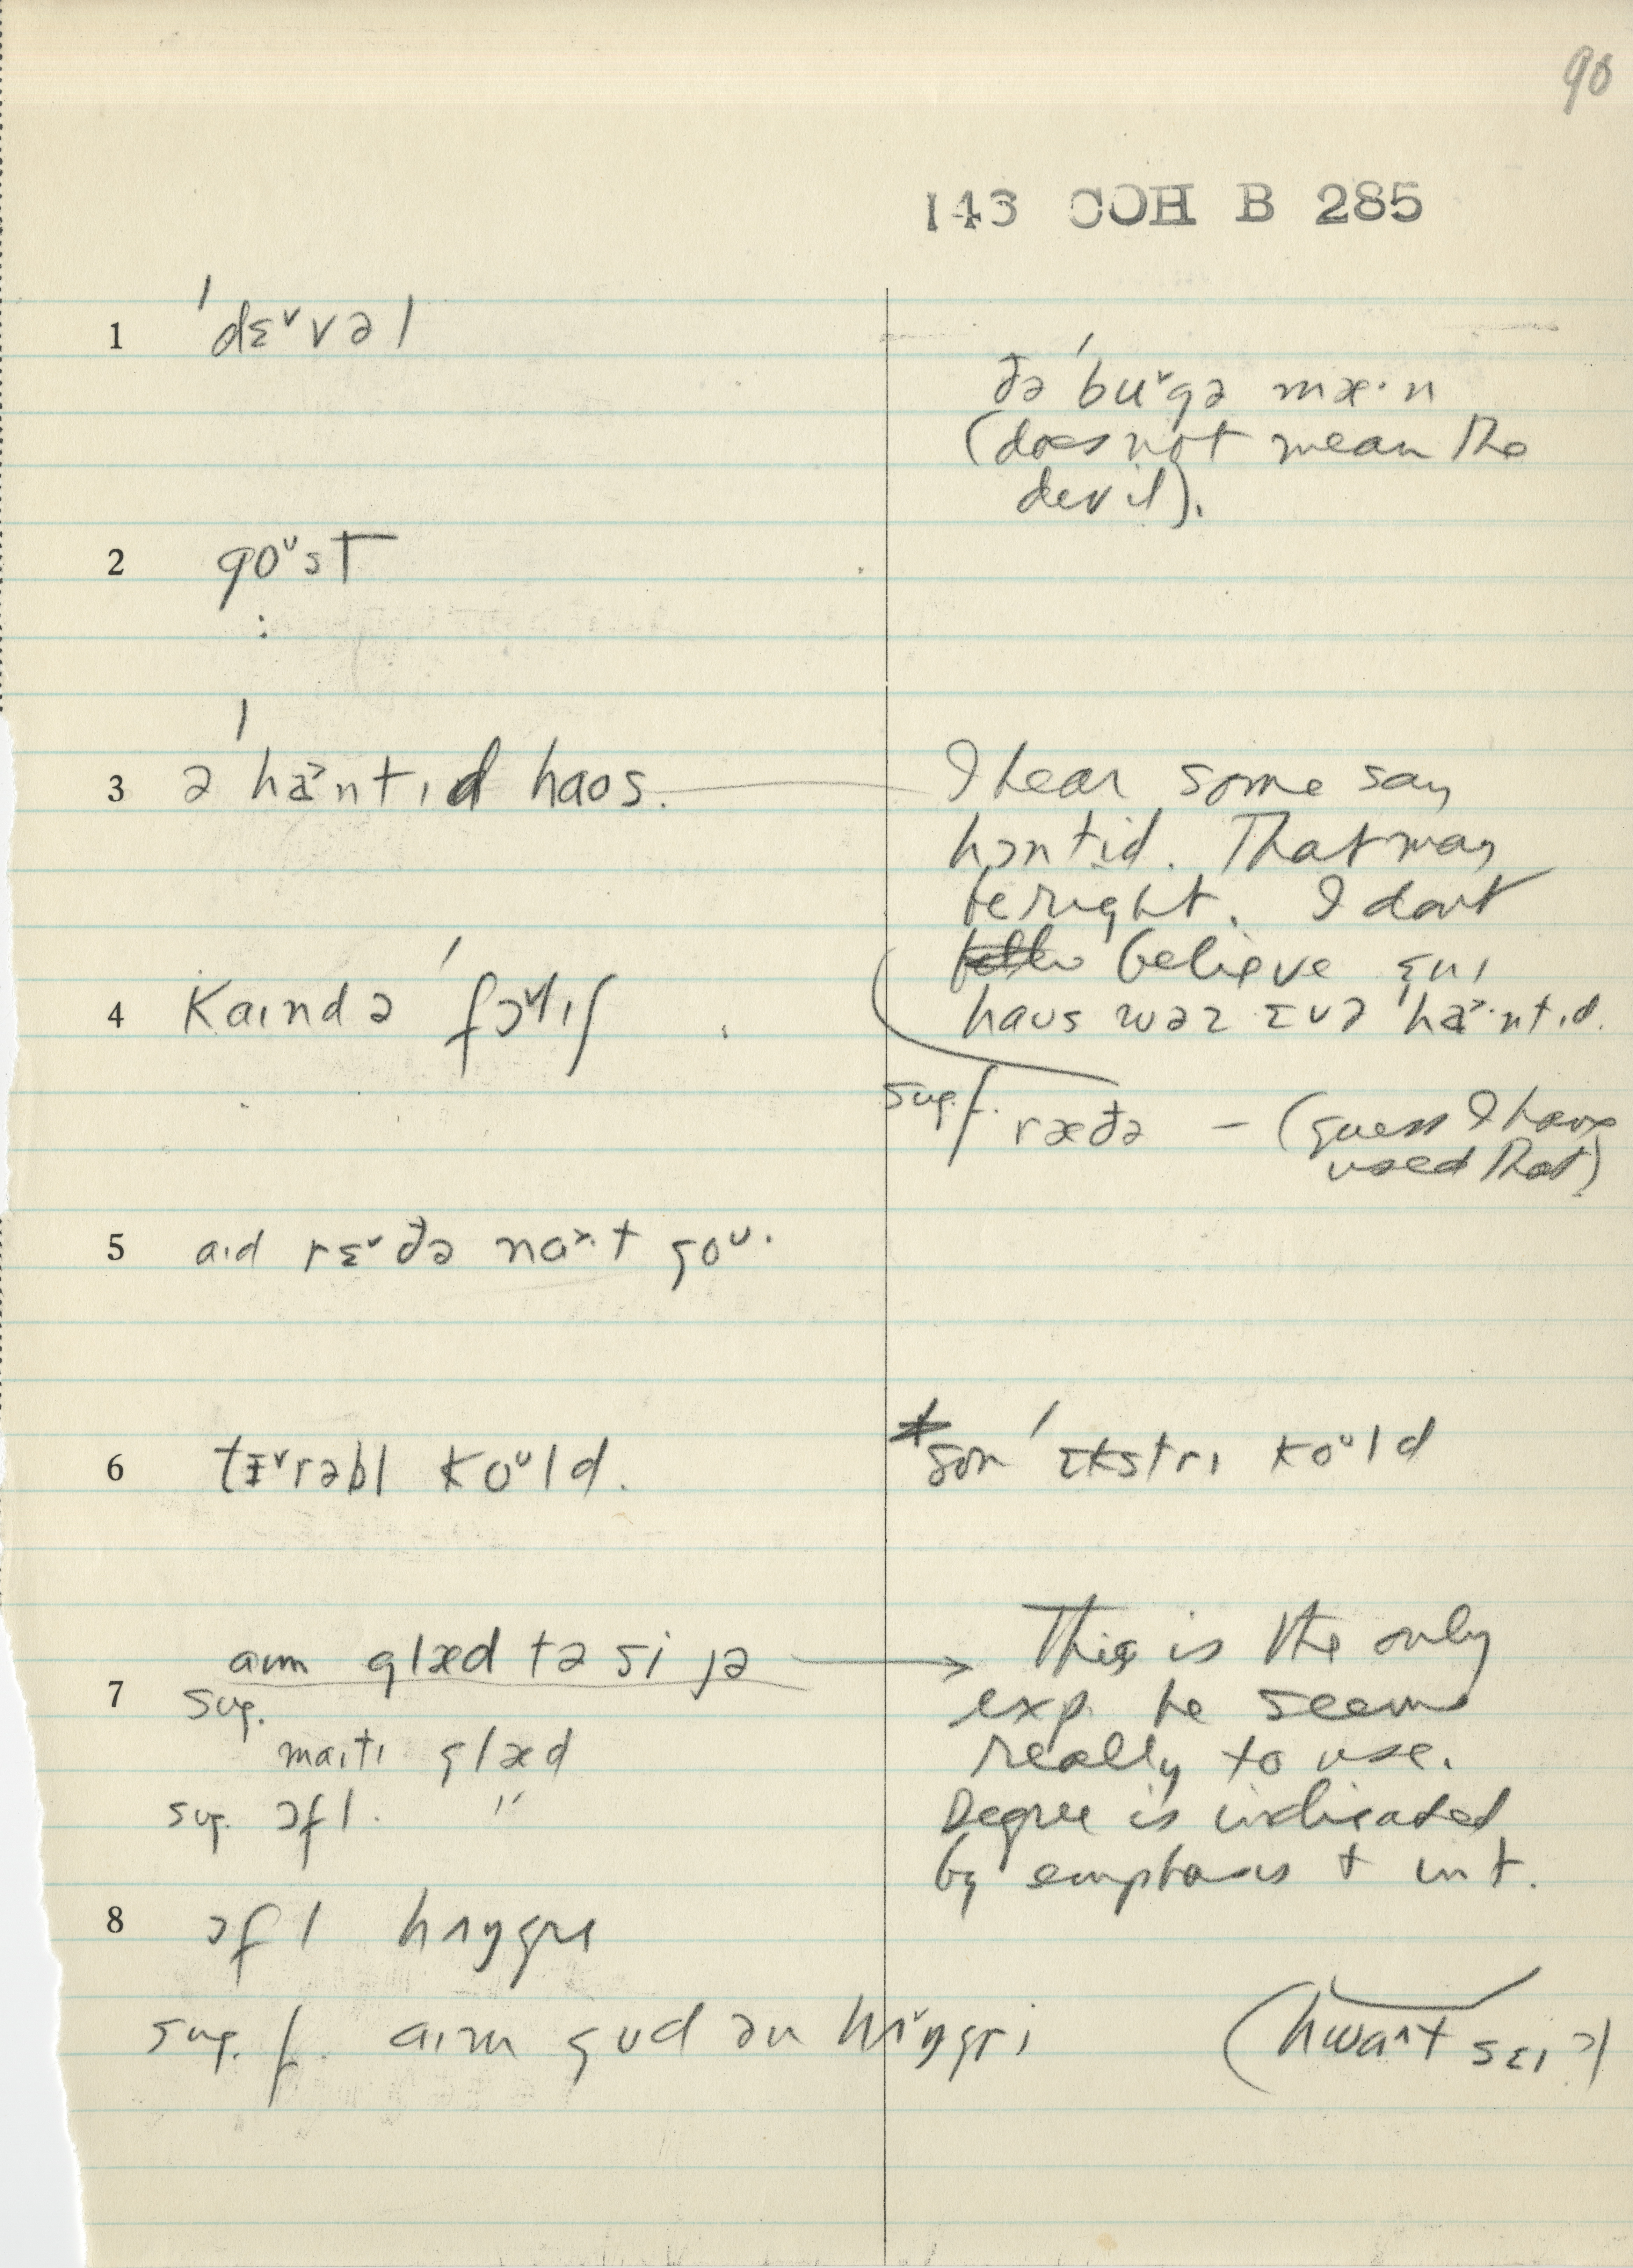 90
143 COH B 285
1 ˈdɛ˅vəl
ðə ˈbu˅gə mæ·n
(does not mean the
devil).
2 goᵘst
:
3 ə ˈhɑ˃ntɪd haos.
I hear some say
hɔntid. That may
be right. I don't
believe ɛnɪ
haus wəz ɛvə ˈhɑ˃·ntɪd.
4 Kaɪndə ˈfɔ˅lɪʃ
sug. f. ræðə – (guess I have
used that)
5 aɪd rɛ˅ðə nɑ˃·t goᵘ.
6 tɛ˅rəbl koᵘld.
* son ˈɛkstrɪ koᵘld
7 aɪm glæd tə si jə
This is the only
exp. he seems
really to use.
Degree is indicated
by emphasis + int.
sug.
maɪtɪ glæd
sug. ɔfl. "
8 ɔfl hʌŋgrɪ
sug. f. aɪm gud ən hʌ˅ŋgrɪ (hwɑ^t sɛɪ?)